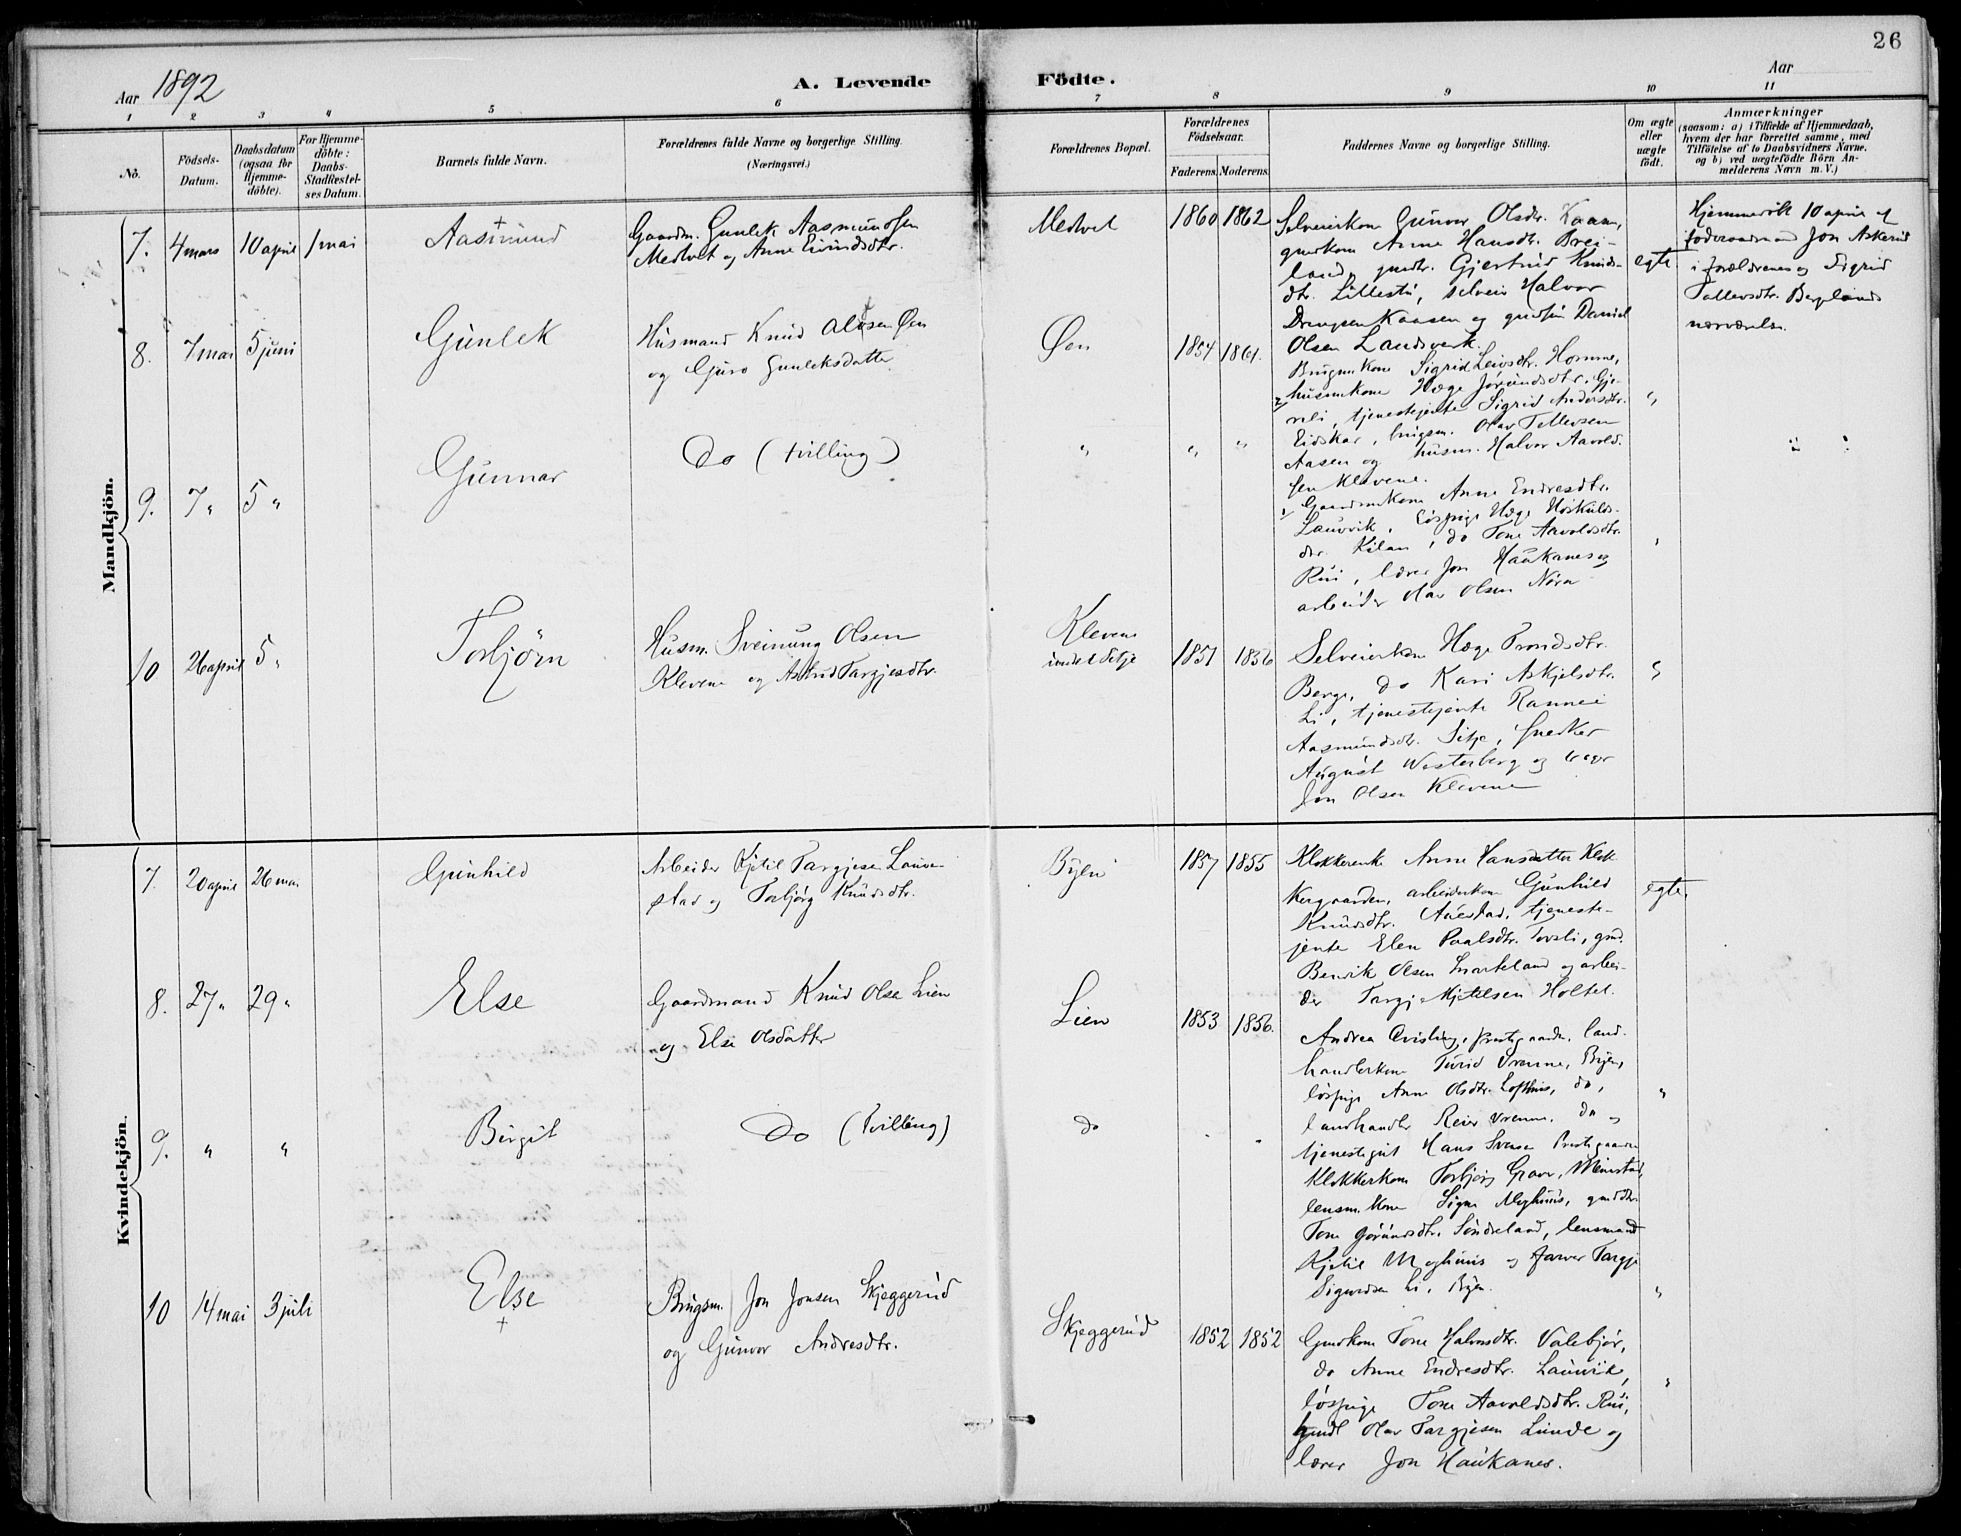 26
Aar 1892
A. Levende
Födte.
Aar
1 2 3 4 5 6 7 8 9 10 11
No.
Födsels-Datum.
Daabsdatum (ogsaa for Hjemme-döbte).
For Hjemme-döbte: Daabs-Stadfæstel-ses Datum.
Barnets fulde Navn.
Forældrenes fulde Navne og borgerlige Stilling.
(Næringsvei.)
Forældrenes Bopæl.
Forældrenes Födselsaar.
Faderens. Moderens.
Faddernes Navne og borgerlige Stilling.
Om ægte eller uægte födt.
Anmærkninger
(saasom: a) i Tilfælde af Hjemmedaab,
hvem der har forrettet samme, med
Tilföielse af to Daabsvidners Navne.
og b) ved uægtefödte Börn An-
melderens Navn m. V.)
Mandkjön.
7. 4 mars 10 april 1 mai
Aasmund
Gaardm. Gunlek Aasmundsen
Medvet og Anne Eivindsdtr.
Medvet
1860 1862
Selveierkone Gunvor Olsdtr. Kaasen,
gmkone Anne Hansdtr. Brei-
land, gmdtr. Gjertrud Knuds-
dtr. Lillestu, selveier Halvor
Drengsen Kaasen og gmdsøn Daniel
Olsen Landsverk.
egte
Hjemmedøbt 10 april af
føderaadmand Jon Askerud
i forældrenes og Sigrid
Tallevsdtr. Bergland
nærværelse.
8. 7 mai 5 juni
Gunlek
Husmand Knud Olsen Øen
og Guro Gunleksdatter
Øen
1854 1861.
Brugmkone Sigrid Leivsdtr. Homme,
husmkone Hæge Jørundsdtr. Gje-
veli, tjenestejente Sigrid Andersdtr.
Eidskar, brugsm. Olav Tellevsen
Aasen og husm. Halvor Aavolds
sen Klevene.
"
9. 7 " 5 "
Gunnar
Do (tvilling)
" " "
Gaardmkone Anne Endresdtr.
Lauvvik, løspige Hæge Høskulds-
dtr. Kilan, do Tone Aavoldsdtr.
Rui, lærer Jon Haukanes og
arbeider Olav Olsen Nøra
"
10 26 april 5 "
Torbjørn
Husm. Sveinung Olsen
Klevene og Astrid Targjesdtr.
Klevene
under Sitje
1851 1856
Selveierkone Hæge Trondsdtr.
Berge, do Kari Askjelsdtr.
Li, tjenestejente Rannei
Aasmundsdtr. Sitje, snedker
August Westerberg og
Jon Olsen Klevene
"
Kvindekjön.
7. 20 april 26 mai
Gunhild
Arbeider Kjetil Targjesen Lauve-
stad og Torbjørg Knudsdtr.
Byen
1857 1855
Klokkerenke Anne Hansdatter Klok
kergaarden, arbeiderkone Gunhild
Knudsdtr. Auestad, tjeneste-
jente Elen Paalsdtr. Tovsli, gmd.
Benvik Olsen Svarteland og arbei-
der Targje Kjetilsen Holtet.
egte.
8. 27 " 29 "
Else
Gaardmand Knud Olsen Lien
og Else Olsdatter
Lien
1853 1856.
Andrea Qvisling, prestegaarden, land-
handlerkone Turid Vrenne, Byen,
løspige Anne Olsdtr. Lofthus, do,
landhandler Reier Vrenne, do og
tjenestegut Hans Svensen Prestegaarden
"
9. " "
Birgit
Do (Tvilling)
do
Klokkerkone Torbjørg Grave, Moenstad,
lensm. kone Signe Moghuus, gmddtr.
Tone Gørundsdtr. Søndreland, lensmand
Kjetil Moghuus og farver Targje
Sigurdsen Li, Byen.
"
10 14 mai 3 juli
Else
Brugsm. Jon Jonsen Skjeggerud
og Gunvor Andresdtr.
Skjeggerud
1852 1852
Gmdkone Tone Halvorsdtr. Valebjør,
do Anne Endresdtr. Lauvvik,
løspige Tone Aavoldsdtr. Rui,
Olav Targjesen Lunde og
lærer Jon Haukanes.
"